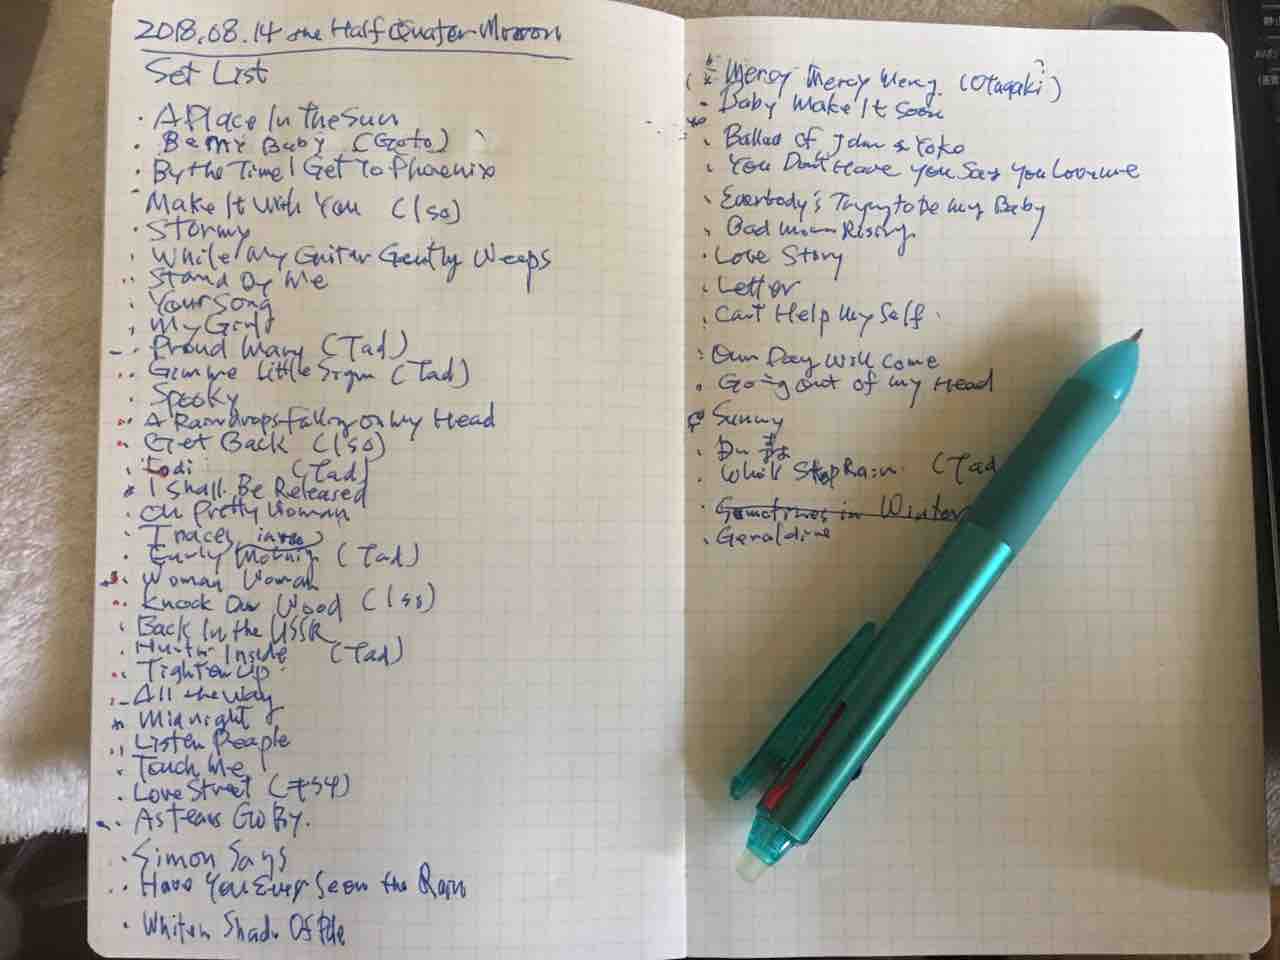 2018.08.14 the Half Quater Mooon
Set List
A Place In the Sun
Be My Baby (Goto)
By the Time I Get To Phoenix
Make It With You (Iso)
Stormy
While My Guitar Gently Weeps
Stand By Me
Your Song
My Girl
Proud Mary (Tad)
Gimme Little Sign (Tad)
Spooky
A Raindrops Falling on My Head
Get Back (Iso)
Lodi (Tad)
I Shall Be Released
Oh Pretty Woman
Traces
Early Morning (Tad)
Woman Woman
Knock On Wood (Iso)
Back In the USSR
Inside (Tad)
Tighten Up
All the Way
Midnight
Listen People
Touch Me
Love Street
As Tears Go By.
Simon Says
Have You Ever Seen the Rain
Whiter Shade Of Pale
Mercy Mercy Mercy (Otagaki?)
Baby Make It Soon
Ballad of John & Yoko
You Don't Have You Say You Love me
Everbody's Trying to be my Baby
Bad Moon Rising
Love Story
Letter
Can't Help My Self
Our Day Will Come
Going out of my Head
Sunny
Who'll Stop Rain (Tad
Sometimes in Winter
Geraldine